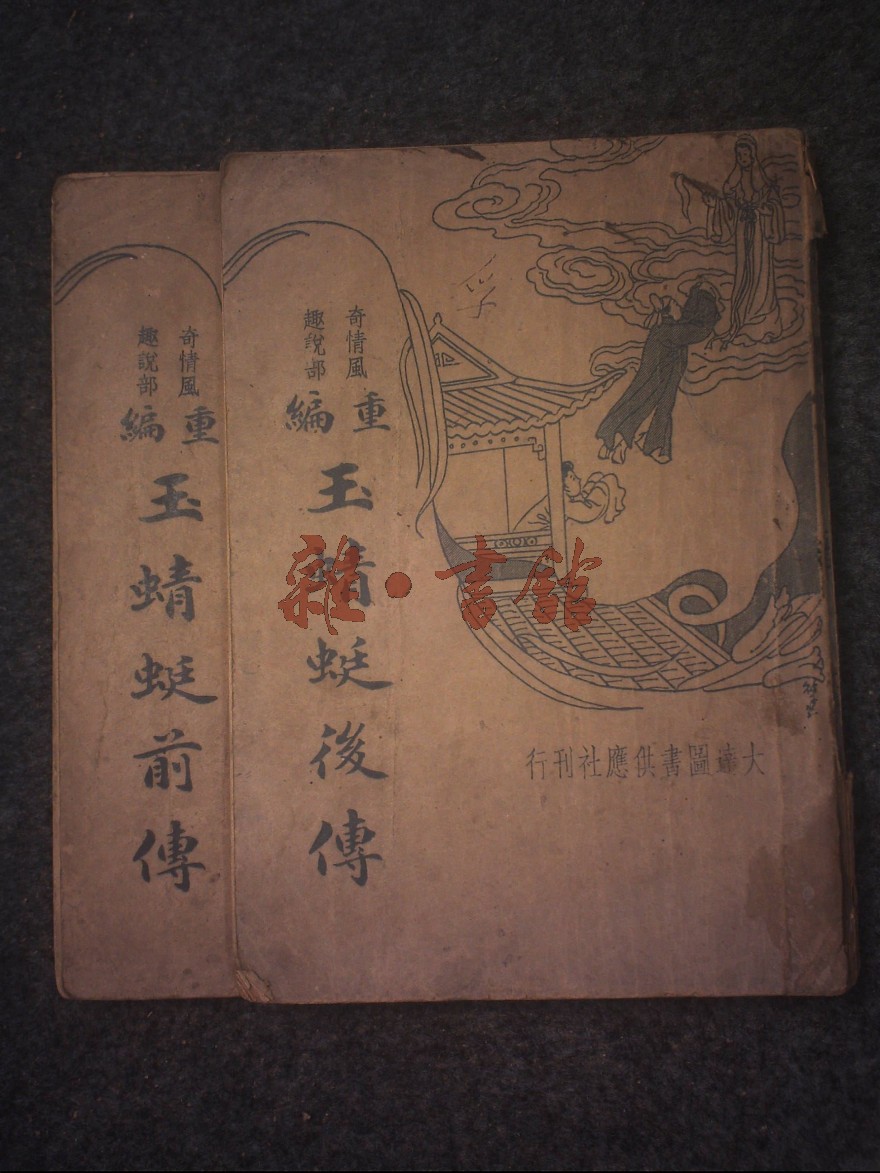 奇情風
趣說部
重編
玉蜻蜓後傳
大達圖書供應社刊行
奇情風
趣說部
重編
玉蜻蜓前傳
雜·書館